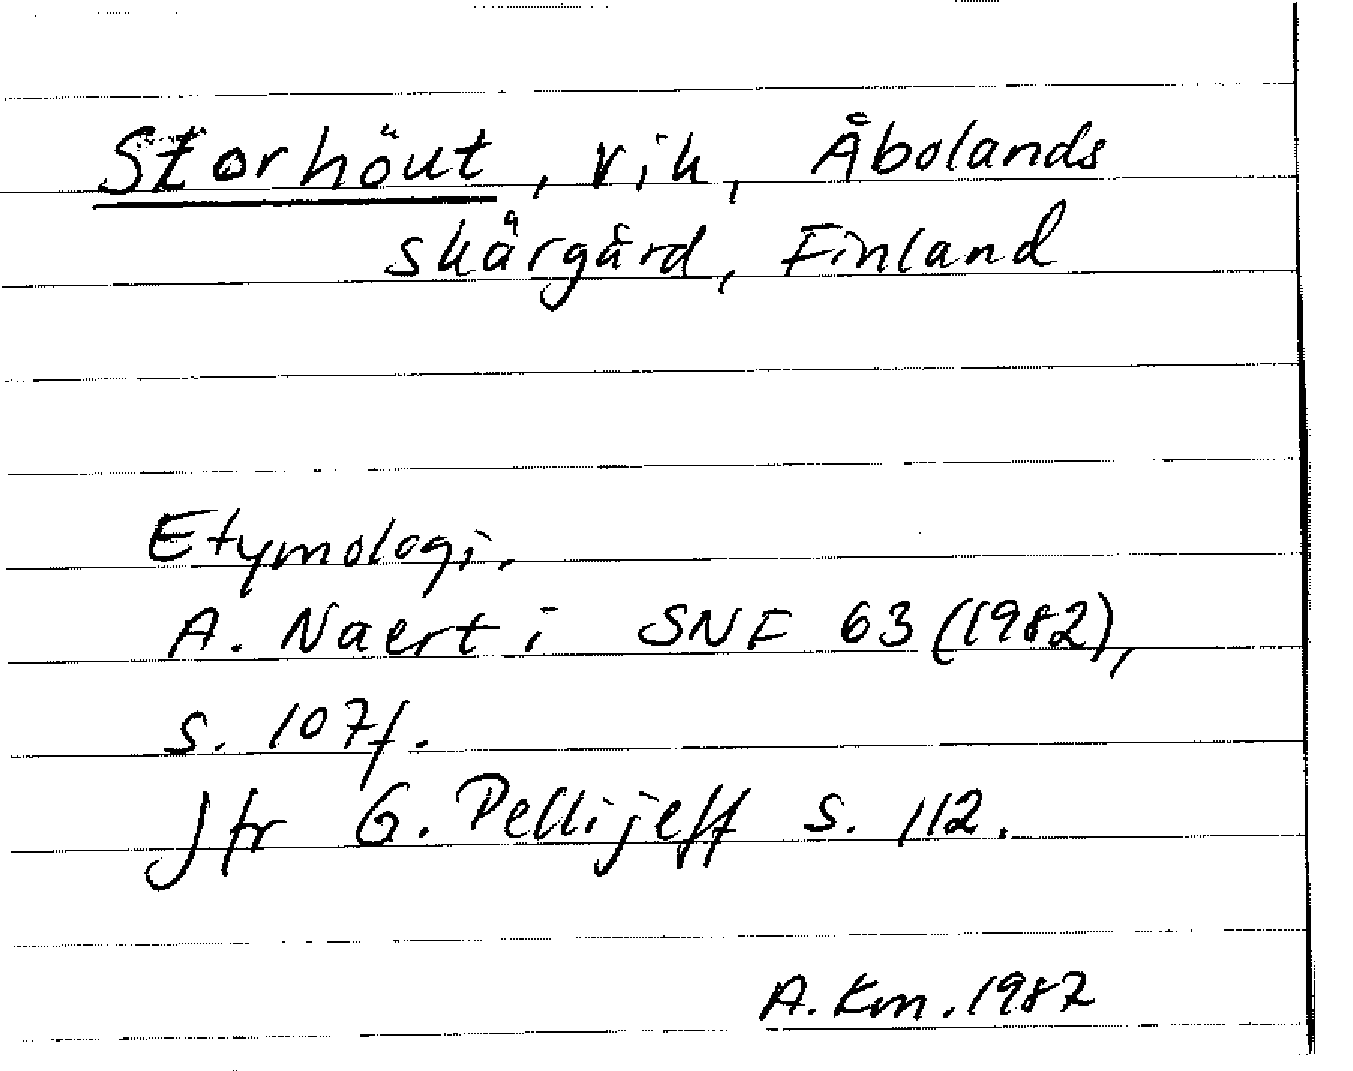 Storhöut, vik, Åbolands
skärgård, Finland
Etymologi.
A. Naert i SNF 63 (1982),
s. 107f.
Jfr G. Pellijeff s. 112.
A. Km. 1987